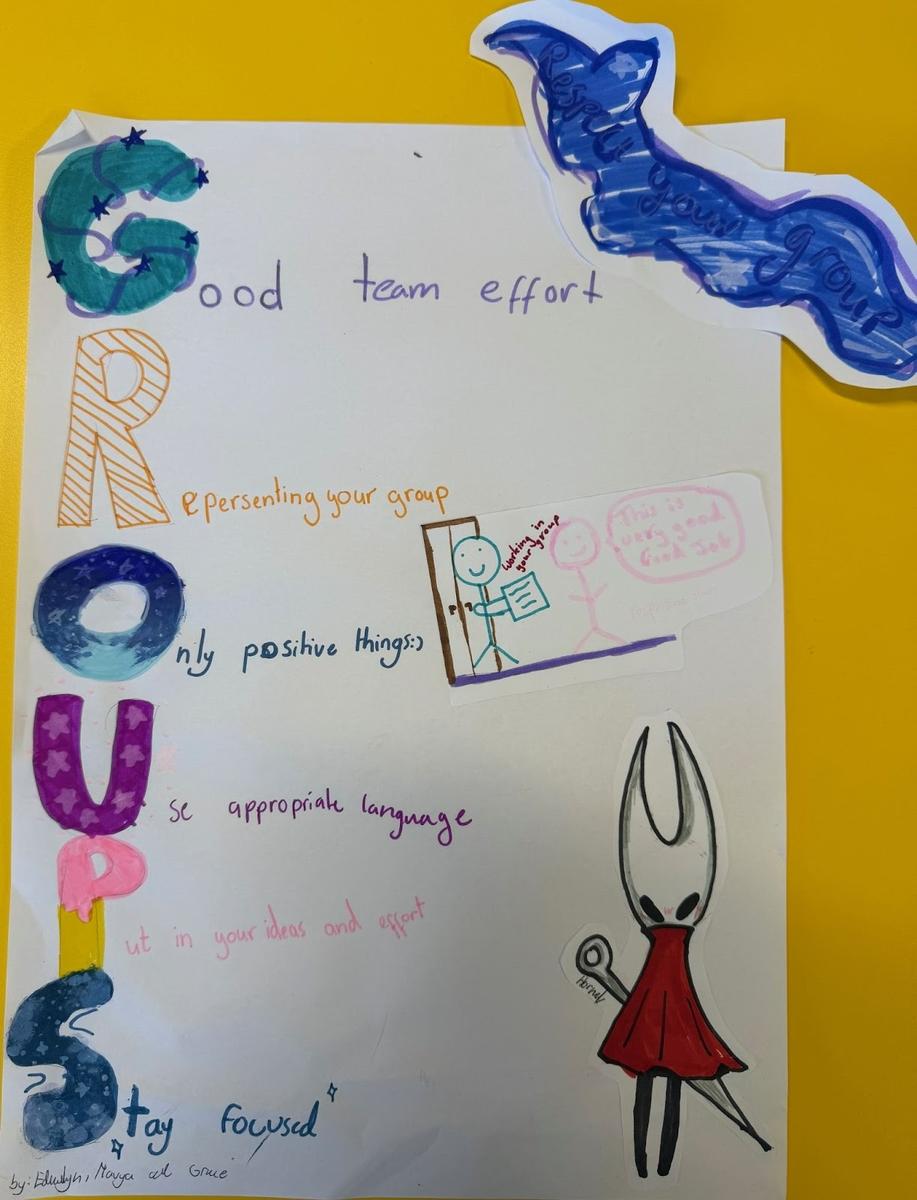 Respect your group
Good team effort
Repersenting your group
Working in
your group
This is
very good
Good Job
Only positive things:)
Use appropriate language
Put in your ideas and effort
Hornet
Stay focused
and Grace